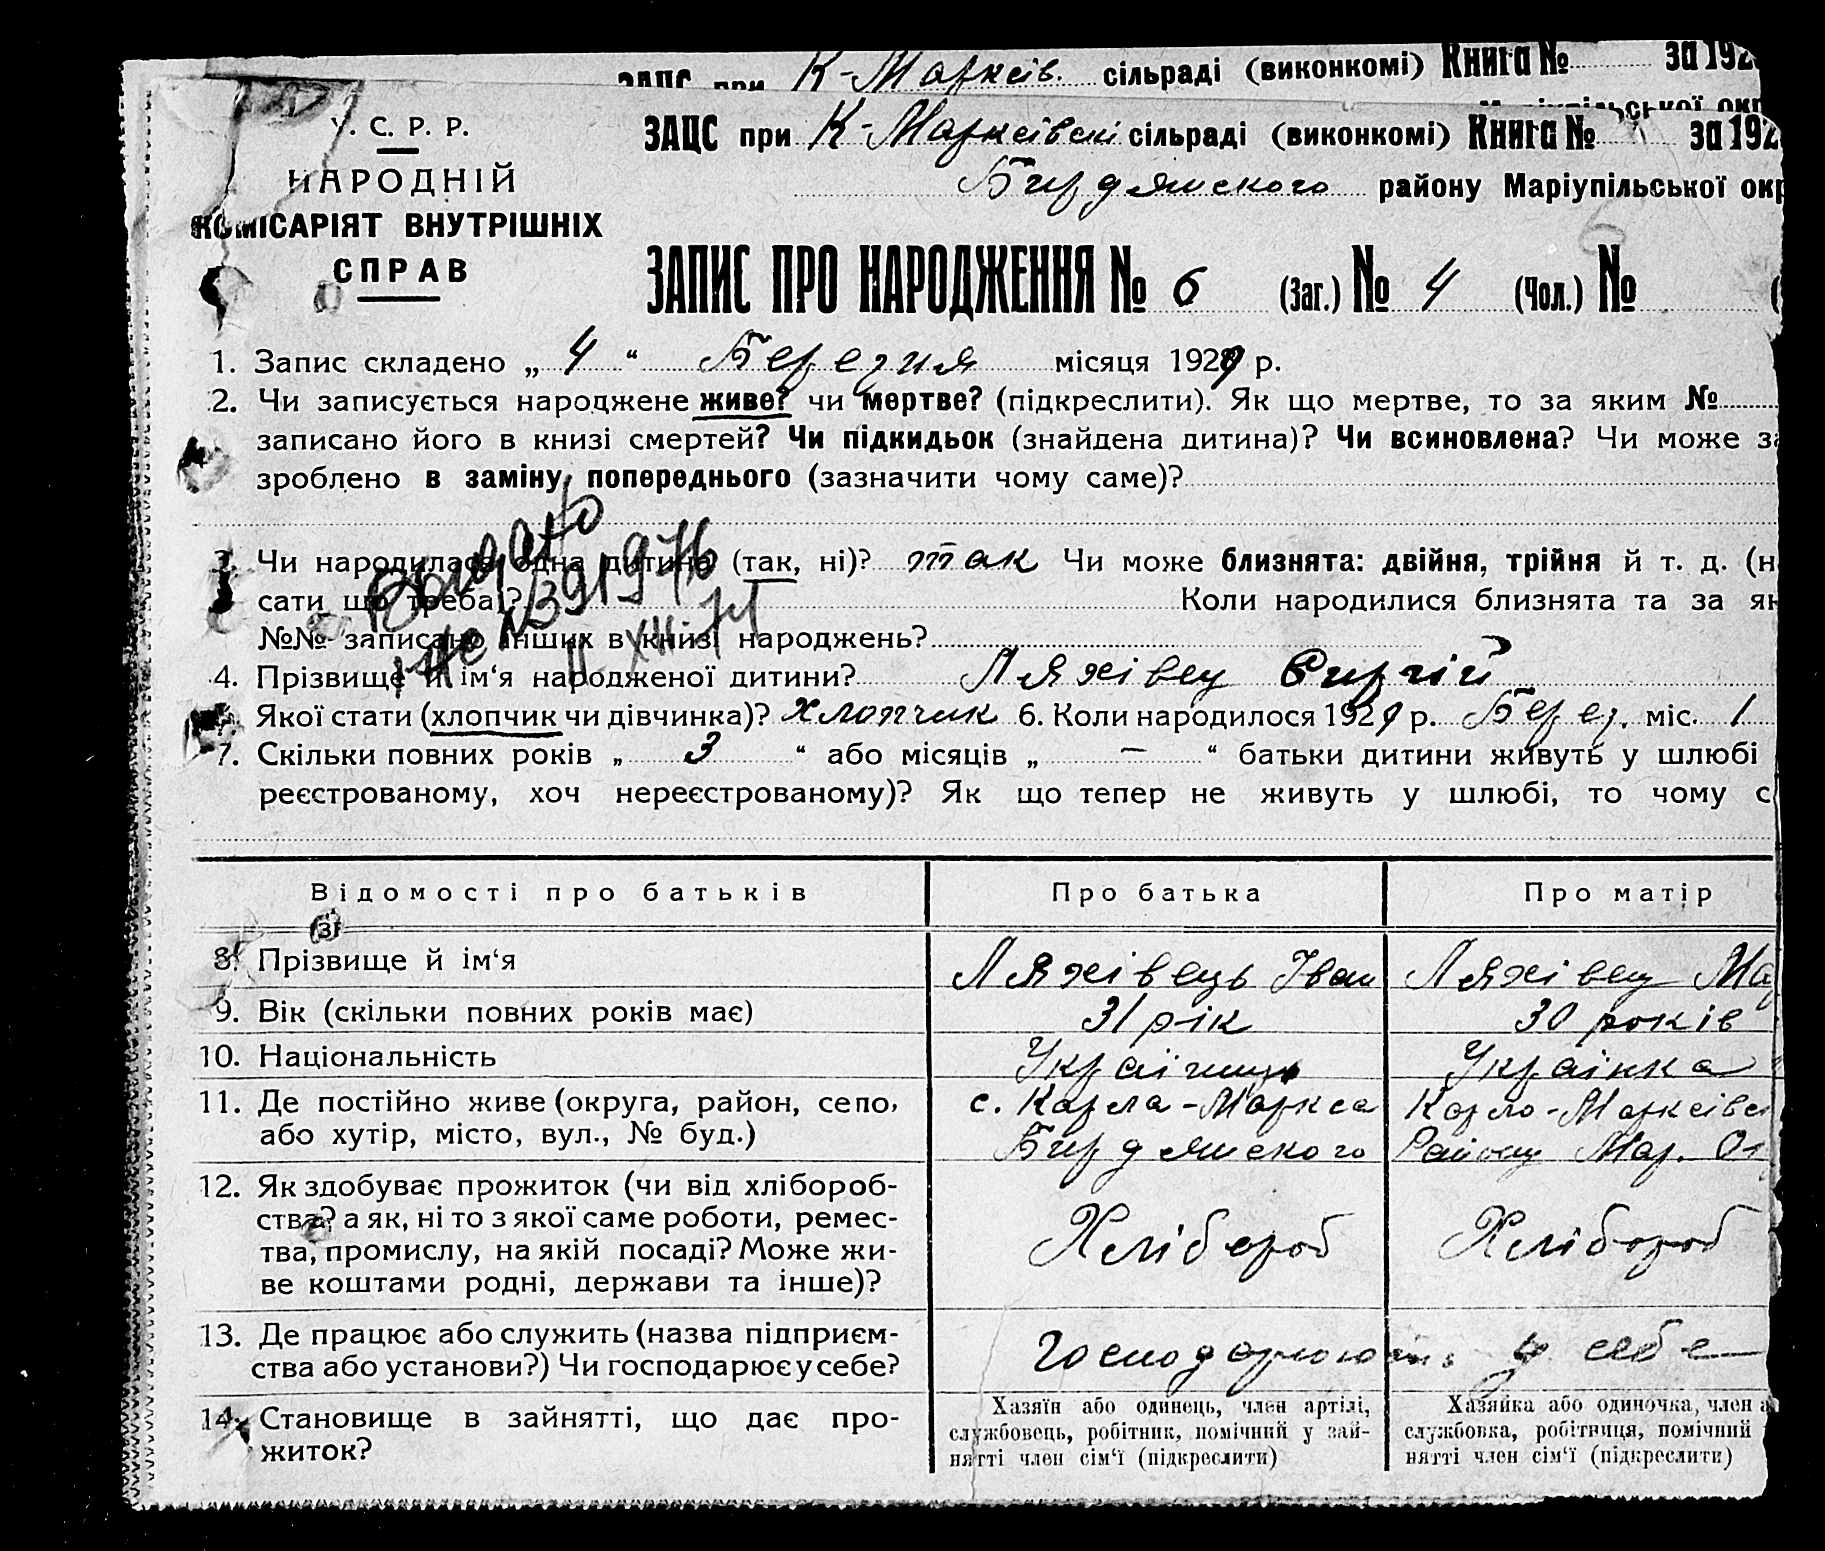 ЗАЦС при К-Марксів. сільраді (виконкомі) Книга № за 192
У. С. Р. Р.
НАРОДНІЙ
КОМІСАРІЯТ ВНУТРІШНІХ
СПРАВ
ЗАЦС при К-Марксівській сільраді (виконкомі) Книга № за 192
Бирдянського району Маріупільської окр
ЗАПИС ПРО НАРОДЖЕННЯ № 6 (Заг.) № 4 (Чол.) №
1. Запис складено „ 4 “ Березня місяця 1929 р.
2. Чи записується народжене живе? чи мертве? (підкреслити). Як що мертве, то за яким №
записано його в книзі смертей? Чи підкидьок (знайдена дитина)? Чи всиновлена? Чи може за
зроблено в заміну попереднього (зазначити чому саме)?
3. Чи народилася одна дитина (так, ні)? так Чи може близнята: двійня, трійня й т. д. (н
сати що треба)? Коли народилися близнята та за як
№№ записано інших в книзі народжень?
4. Прізвище й ім‘я народженої дитини? Ляхівец Сиргій
Якої стати (хлопчик чи дівчинка)? хлопчик 6. Коли народилося 1929 р. Берез. міс. 1
7. Скільки повних років „ 3 “ або місяців „ — “ батьки дитини живуть у шлюбі
реєстрованому, хоч нереєстрованому)? Як що тепер не живуть у шлюбі, то чому с
Відомості про батьків Про батька Про матір
8. Прізвище й ім‘я Ляхівець Іван Ляхівец Ма
9. Вік (скільки повних років має) 31 рік 30 років
10. Національність Українець Українка
11. Де постійно живе (округа, район, село, с. Карла-Маркса Карло-Марксівс
або хутір, місто, вул., № буд.) Бирдянського Району Мар. Ок
12. Як здобуває прожиток (чи від хлібороб-
ства? а як, ні то з якої саме роботи, ремес-
тва, промислу, на якій посаді? Може жи-
ве коштами родні, держави та інше)?
Хлібороб Хлібороб
13. Де працює або служить (назва підприєм-
ства або установи?) Чи господарює у себе?
Господарюють у себе
14. Становище в зайнятті, що дає про-
житок?
Хазяїн або одинець, член артілі,
службовець, робітник, помічний у зай-
нятті член сім‘ї (підкреслити)
Хазяйка або одиночка, член а
службовка, робітниця, помічний
нятті член сім‘ї (підкреслити)